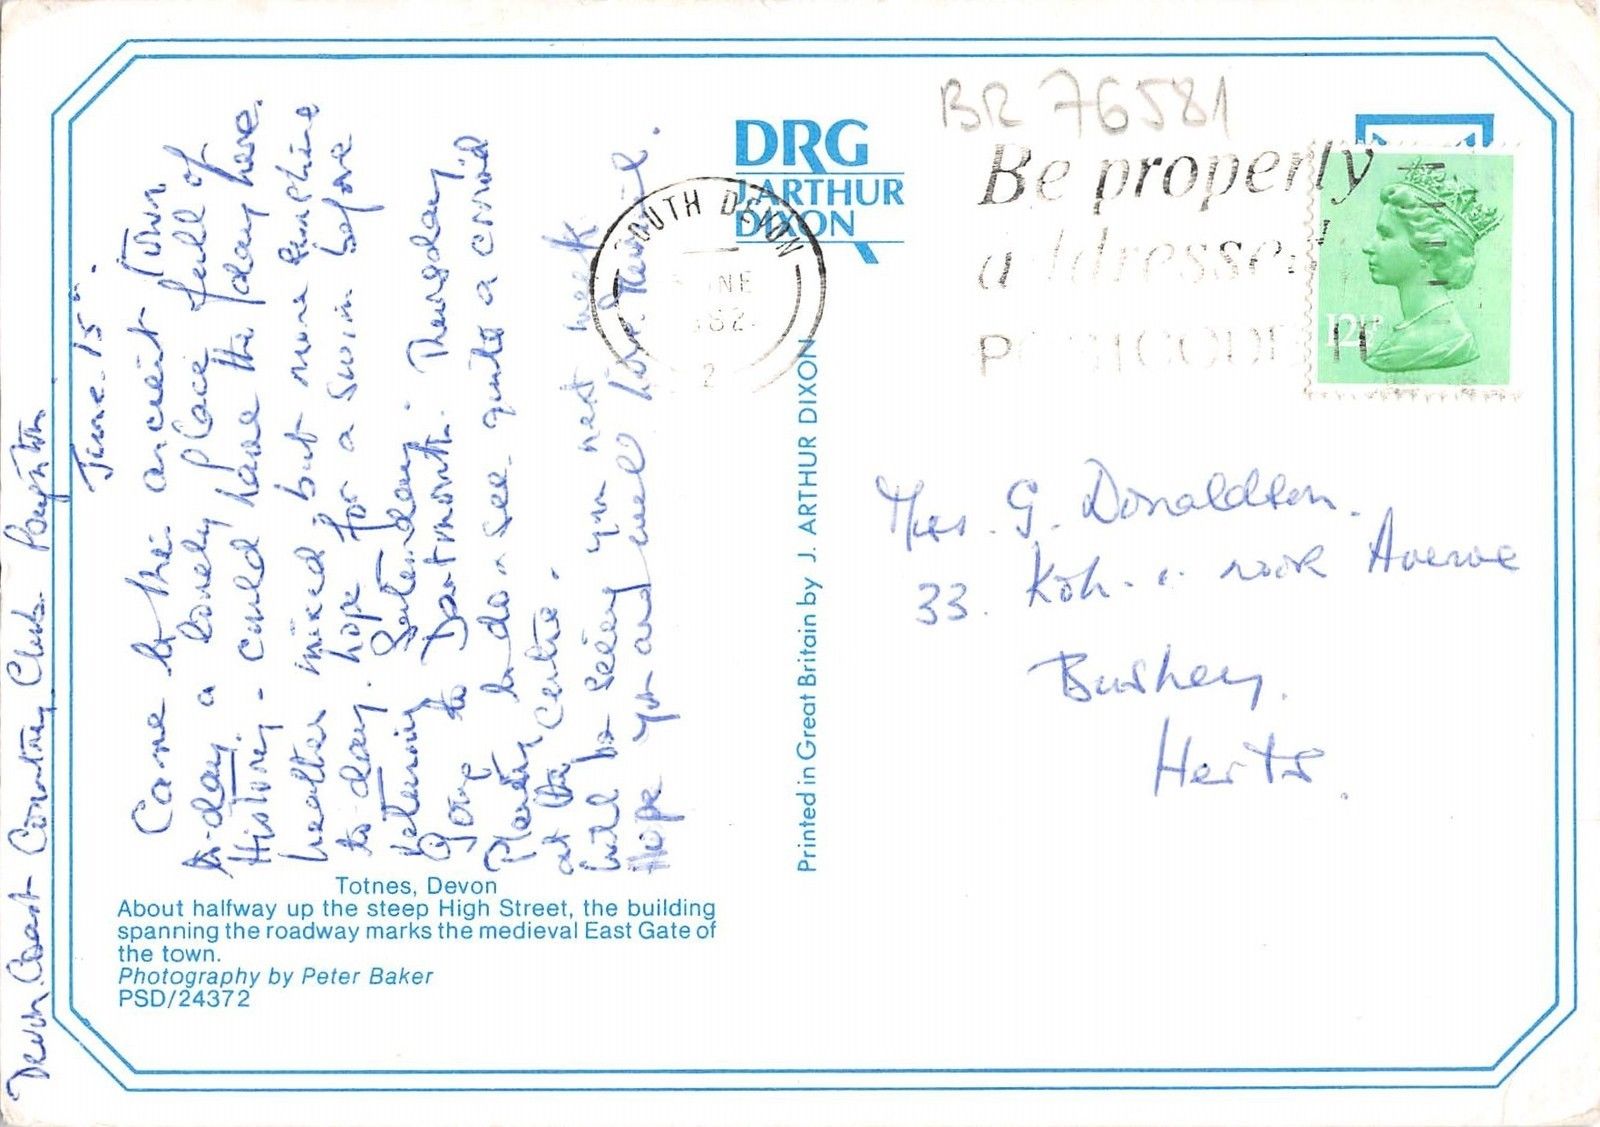 Devon Coast Country Club. Paignton
June. 15th.
Came to this ancient Town
to-day. a lovely place full of
History - could have the day here.
Weather mixed, but more sunshine
to-day. hope for a swim before
returning Saturday.
Going to Dartmouth. Thursday
Plenty to do & see. quite a crowd
at the Centre.
Will be seeing you next week
Hope you are well
Totnes, Devon
About halfway up the steep High Street, the building
spanning the roadway marks the medieval East Gate of
the town.
Photography by Peter Baker
PSD/24372
DRG
J. ARTHUR
DIXON
Printed in Great Britain by J. ARTHUR DIXON
BR 76581
SOUTH DEVON
Be properly
addressed
POSTCODE IT
12½P
Mrs. G. Donaldson.
33. Koh-i-noor Avenue
Bushey.
Herts.